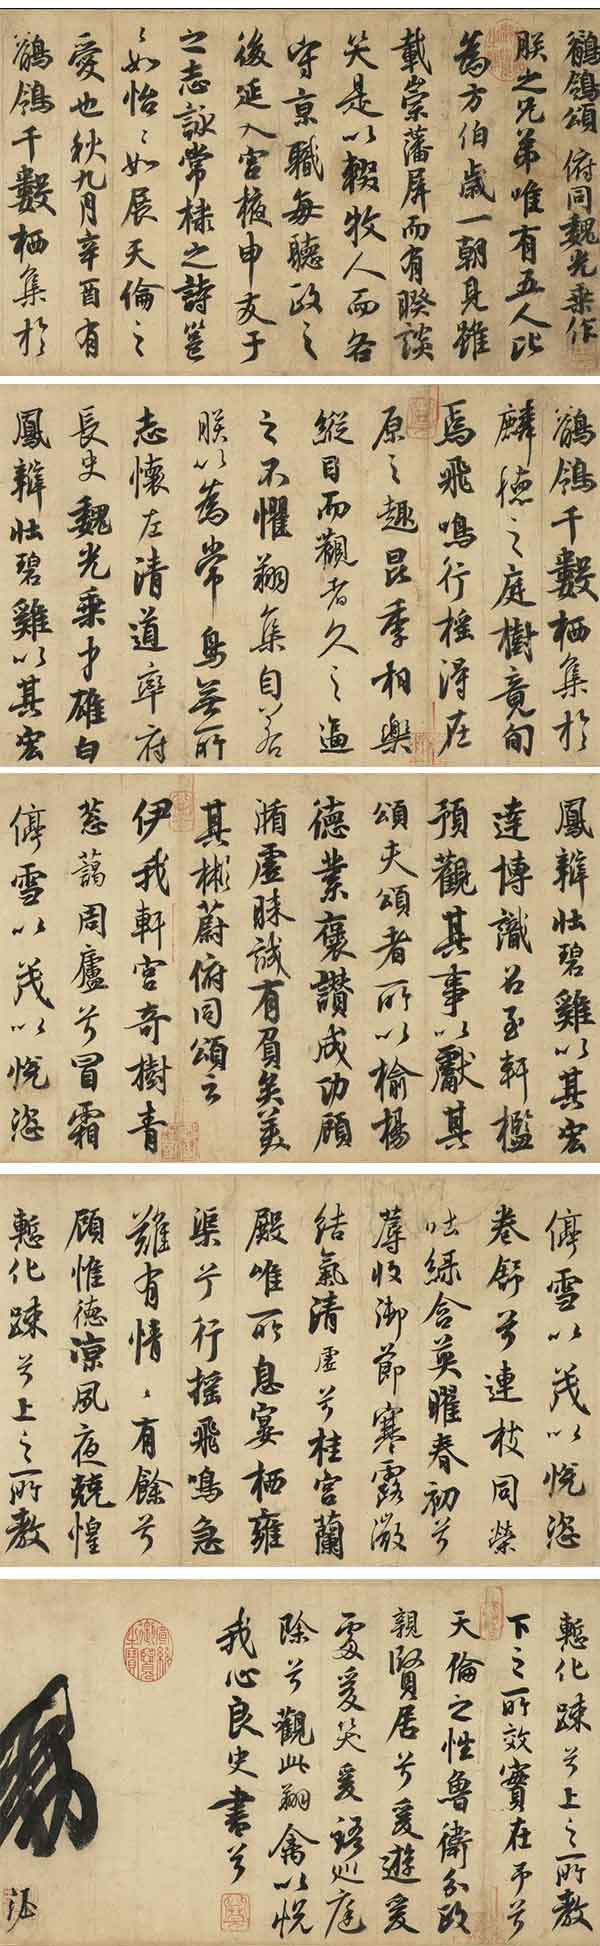 鶺鴒頌 俯同魏光乘作
朕之兄弟唯有五人比
為方伯歲一朝見雖
載崇藩屏而有睽談
笑是以輟牧人而各
守京職每聽政之
後延入宮掖申友于
之志詠常棣之詩邕
〻如怡〻如展天倫之
愛也秋九月辛酉有
鶺鴒千數栖集於
鶺鴒千數栖集於
麟德之庭樹竟旬
焉飛鳴行摇得在
原之趣昆季相樂
縱目而觀者久之逼
之不懼翔集自若
朕以為常鳥無所
志懷左清道率府
長史魏光乘才雄白
鳳辯壯碧雞以其宏
鳳辯壯碧雞以其宏
達博識召至軒檻
預觀其事以獻其
頌夫頌者所以揄揚
德業褒讚成功顧
循虛昧誠有負矣美
其彬蔚俯同頌云
伊我軒宮奇樹青
蔥藹周廬兮冒霜
停雪以茂以悅恣
停雪以茂以悅恣
卷舒兮連枝同榮
吐綠含英曜春初兮
蓐收御節寒露微
結氣清虛兮桂宮蘭
殿唯所息宴栖雍
渠兮行搖飛鳴急
難有情〻有餘兮
顧惟德凉夙夜兢惶
慙化踈兮上之所教
慙化踈兮上之所教
下之所效實在予兮
天倫之性魯衛分政
親賢居兮爰遊爰
處爰笑爰語巡庭
除兮觀此翔禽以悅
我心良史書兮